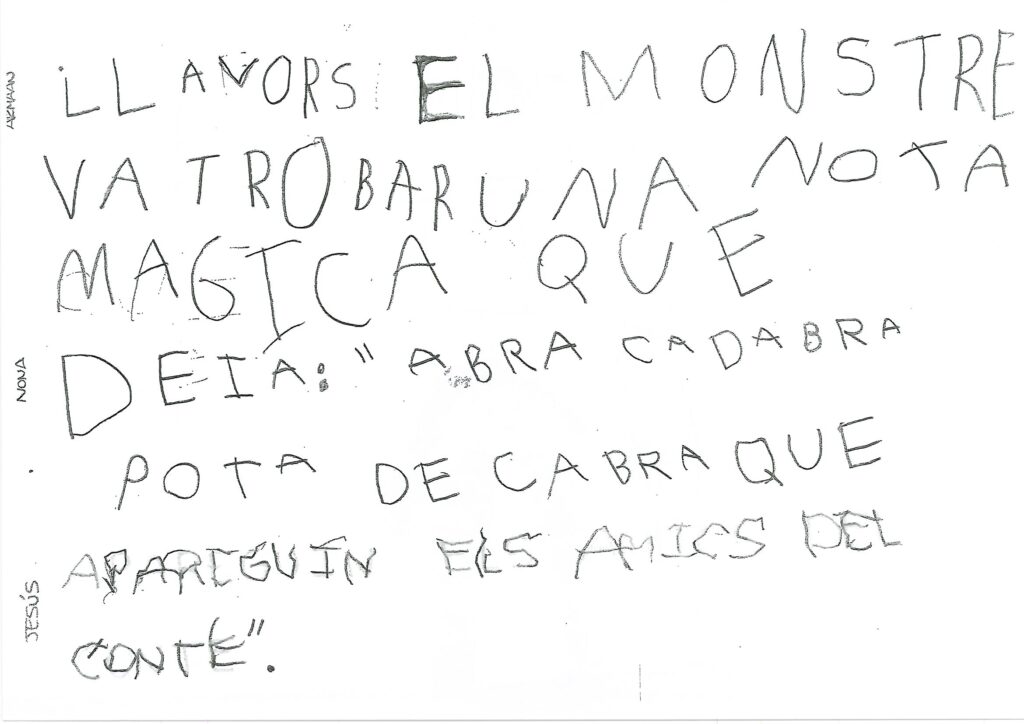 ARMAAN
iLLAVORS EL MONSTRE
VA TROBAR UNA NOTA
MAGICA QUE
NONA
DEIA: "ABRA CADABRA
POTA DE CABRA QUE
JESÚS
APARIGUIN ELS AMICS DEL
CONTE".